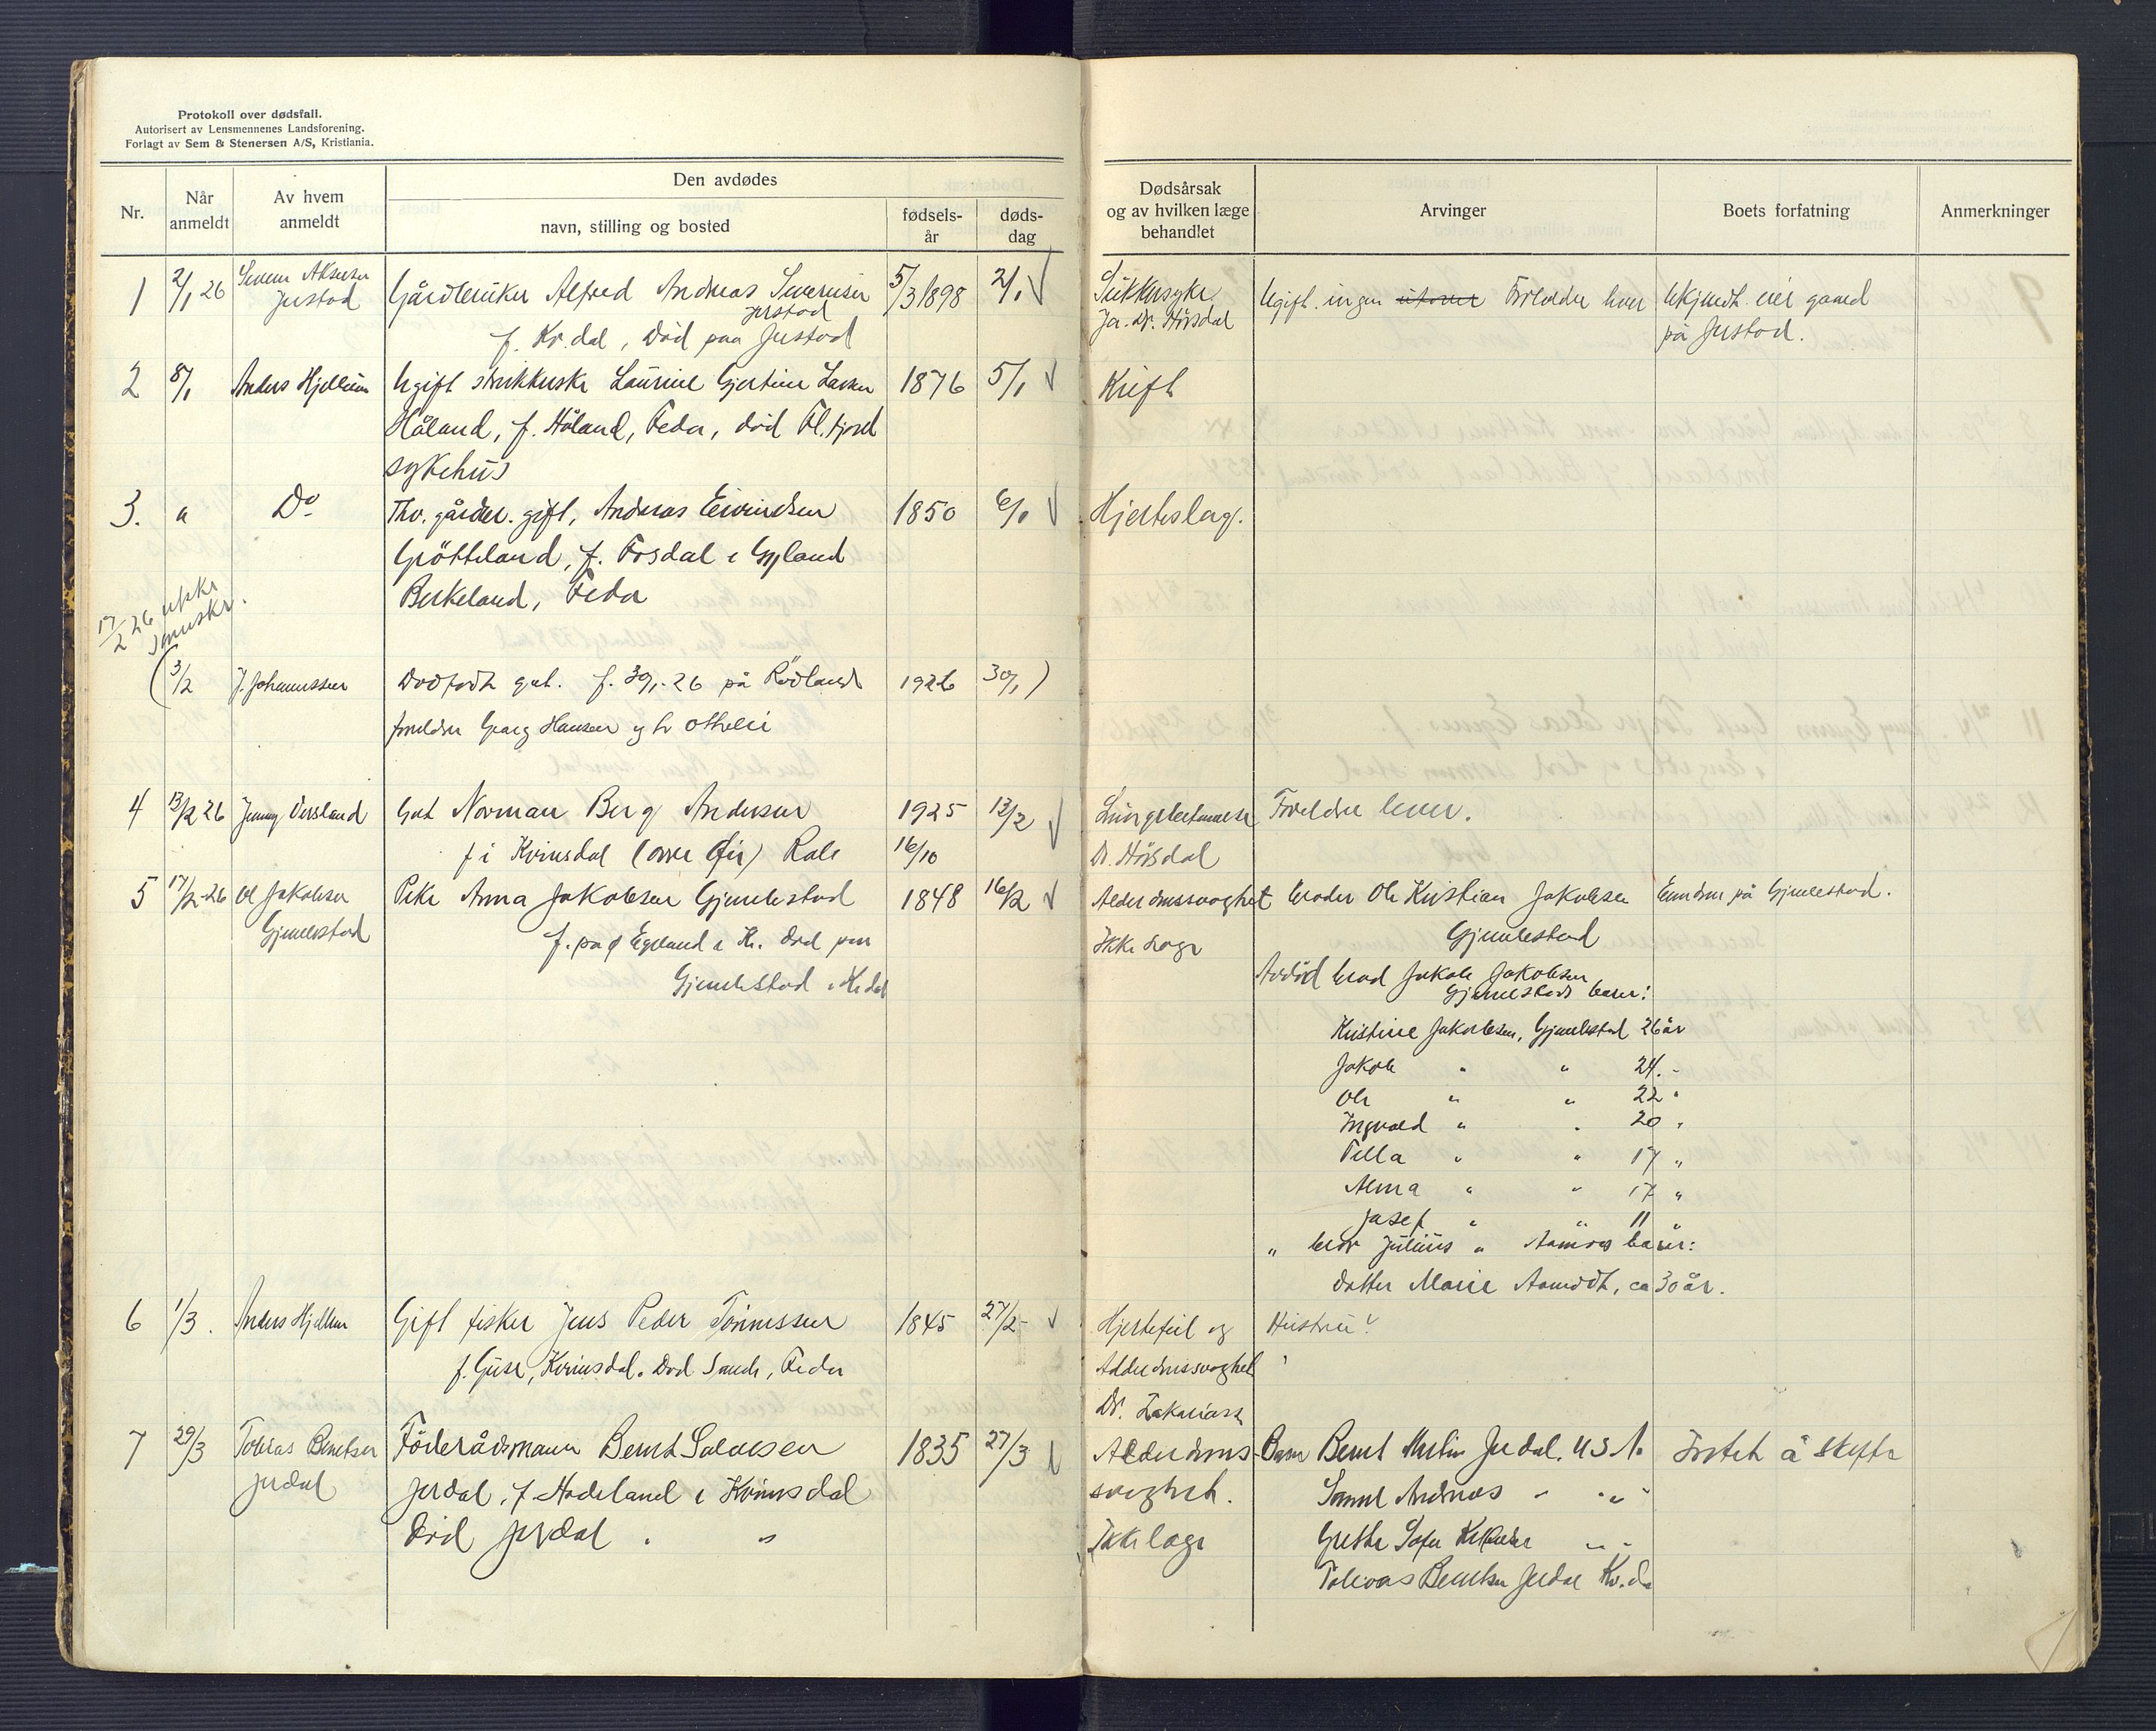 Protokoll over dødsfall.
Autorisert av Lensmennenes Landsforening.
Forlagt av Sem & Stenersen A/S, Kristiania.
Nr.
Når anmeldt
Av hvem anmeldt
Den avdødes
navn, stilling og bosted
fødsels-år
døds-dag
Dødsårsak og av hvilken læge behandlet
Arvinger
Boets forfatning
Anmerkninger
9
1 2/1 26 Jerstad Gårdbruker Alfred Andreas Severinsen 5/3 1898 2/1 Sukkersyke Ugift. ingen utover Foreldre lever Ukjendt. eier gaard
Jerstad
f. Kv.dal, død paa Jerstad Ja. Dr. Hörsdal på Jerstad.
2 8/1 Anders Hjellum Ugift strikkerske Laurine Gjertine Larsen 1876 5/1 Kreft
Håland, f. Håland, Feda, död Fl.fjord
sykehus
3. " Do Fhv. gårdbr. gift, Andreas Eivindsen 1850 6/1 Hjerteslag.
Grötteland, f. Fosdal i Gyland
Berkeland, Feda
17/2 26
(3/2 J. Johannessen Dödfödt gut. f. 30/1-26 på Rödland 1926 30/1)
foreldre Georg Hansen og h. Othelie
4 13/2 26 Jenny Versland Gut Norman Berg Andersen 1925 13/2 Lungebetennelse Foreldre lever.
f i Kvinsdal (övre Öie) 16/10 Dr. Hörsdal
5 17/2-26 Ol Jakobsen Pike Anna Jakobsen Gjemlestad 1848 16/2 Alderdomssvaghet broder Ole Kristian Jakobsen Eiendom på Gjemlestad.
Gjemlestad f. på Egeland i Kv. död paa Ikke læge Gjemlestad
Gjemlestad i Kv.dal Avdöd brod Jakob Jakobsen
Gjemlestads barn:
Kristine Jakobsen, Gjemlestad 26 år
Jakob " " 24. -
Ole " " 22 "
Ingvald " " 20 "
Tella " " 17 "
Alma " " 17 "
Josef " " 11 "
" bror Julius " Aamots barn:
datter Marie Aamodt, ca 30 år.
6 1/3. Anders Hjellum Gift fisker Jens Peder Tönnessen 1845 27/2 Hjertefeil og Hustru?
f. Guse, Kvinsdal. Död Sande, Feda Alderdomssvaghet
Dr. Zakariasen
7 29/3 Tobias Berntsen Föderådsmann Bernt Salvesen 1835 27/3 Alderdoms- Barn Bernt Martin Jerdal. U.S.A.
Jerdal Jerdal, f. Hodeland i Kvinsdal svaghet. Samuel Andreas " " "
Död Jerdal " " Ikke læge Grethe Sofie " "
Tobias Berntsen Jerdal Kv.d.